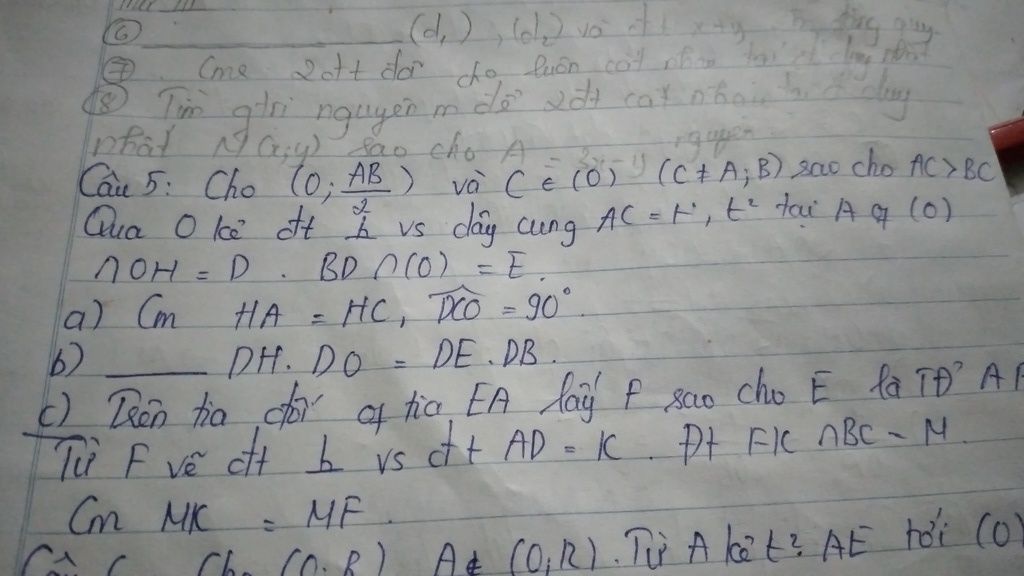 ⑥ (d₁), (d₂) và đt
⑦ Cmr 2đt đã cho luôn cắt nhau tại
⑧ Tìm gtri nguyên m để 2đt cắt nhau tại
nhất N(x;y) sao cho A = nguyên
Câu 5: Cho (O; AB/2) và C ∈ (O) (C ≠ A; B) sao cho AC > BC
Qua O kẻ đt ⊥ vs dây cung AC = H, t² tại A of (O)
∩ OH = D. BD ∩ (O) = E.
a) Cm HA = HC, \widehat{DCO} = 90°.
b) ____ DH. DO = DE. DB.
c) Trên tia đối of tia EA lấy F sao cho E là TĐ' AF
Từ F vẽ đt ⊥ vs đt AD = K. Đt FK ∩ BC = M.
Cm MK = MF.
Cho (O; R) A ∉ (O, R). Từ A kẻ t² AE tới (O)